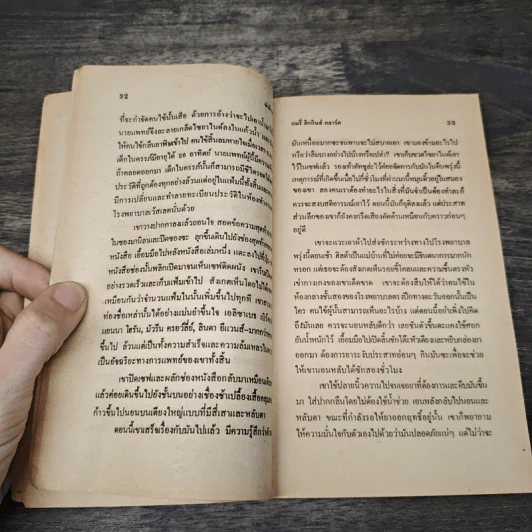 32
ที่จะกำจัดคนไข้นั้นเสีย ด้วยการอ้างว่าจะไปเอา
นายแพทย์จึงละลายเกล็ดไซยาไนด์ลงในแก้วน้ำ
ให้คนไข้กลืนยาพิษเข้าไป คนไข้สิ้นลมหายใจเมื่อ
เด็กในครรภ์มีอายุได้ ๒๐ อาทิตย์ นายแพทย์ผู้นี้มีความ
ถ้าคลอดออกมา เด็กในครรภ์นั้นก็สามารถมีชีวิต
ประวัติที่ถูกต้องทุกอย่างล้วนแต่อยู่ในแฟ้มนี้ทั้งสิ้น
มีการเปลี่ยนและทำลายทะเบียนประวัติในห้อง
โรงพยาบาลเวัสเลคนั้นด้วย
เขาวางปากกาลงแล้วถอนใจ สอดข้อความสุดท้าย
ในซองมานิลาและปิดซองซะ ลุกขึ้นเดินไปยังช่องสุดท้าย
หนังสือ เอื้อมมือไปหลังหนังสือเล่มหนึ่ง แตะลงไปที่
หนังสือช่องนั้นพลิกเปิดมาจนเห็นเซฟติดผนัง เขารีบเปิด
อย่างรวดเร็วและเก็บแฟ้มเข้าไป สังเกตเห็นโดยไม่ได้
เหมือนกันว่าจำนวนแฟ้มในนั้นเพิ่มขึ้นไปทุกที เขาสามารถ
ท่องชื่อเหล่านั้นได้อย่างแม่นยำขึ้นใจ เอลิซาเบธ
แอนนา โฮรัน, มัวรีน ครอวลี่ย์, ลินดา อีแวนส์-มาก
ขึ้นไป ล้วนแต่เป็นทั้งความสำเร็จและความล้มเหลวใน
เป็นอัจฉริยะทางการแพทย์ของเขาทั้งสิ้น
เขาปิดเซฟและผลักช่องหนังสือกลับมาเหมือนเดิม
แล้วค่อยเดินขึ้นไปยังชั้นบนอย่างเชื่องช้าเปลื้องเสื้อคลุม
ก้าวขึ้นไปนอนบนเตียงใหญ่แบบที่มีสี่เสาและหลับตา
ตอนนี้เขาเสร็จเรื่องกับมันไปแล้ว มีความรู้สึกว่าตัว
แมรี่ ฮิกกินส์ คลาร์ค 33
มันเหนื่อยมากซะจนพานจะไม่สบายเอา เขามองข้ามอะไรไป
หรือว่าลืมบางอย่างไปบ้างหรือเปล่า? เขาเก็บขวดไซยาไนด์เอา
ไว้ในเซฟแล้ว รองเท้าคัทชูล่ะไว้ค่อยจัดการกับมันในคืนพรุ่งนี้
เหตุการณ์ที่เกิดขึ้นเมื่อไม่กี่ชั่วโมงที่ผ่านมานี้หมุนคว้างอยู่ในสมอง
ของเขา ลองคนเราต้องทำอะไรในสิ่งที่มันจำเป็นต้องทำล่ะก็
ควรจะสงบสติอารมณ์เอาไว้ ตอนนี้มันก็ยุติลงแล้ว แต่ประสาท
ส่วนลึกของเขาก็ยังคงกรีดเสียงคัดค้านเหมือนกับคราวก่อนๆ
อยู่ดี
เขาจะแวะเอาผ้าไปส่งซักระหว่างทางไปโรงพยาบาล
พรุ่งนี้ตอนเช้า ฮิลด้าเป็นแม่บ้านที่ไม่ค่อยจะมีจินตนาการมากนัก
หรอก แต่เธอจะต้องสังเกตเห็นรอยขี้โคลนและความชื้นตรงหัว
เข่ากางเกงของเขาเด็ดขาด เขาจะต้องสืบให้ได้ว่าคนไข้ใน
ห้องกลางชั้นสองของโรงพยาบาลตะเปีกทางตะวันออกนั้นเป็น
ใคร คนไข้ผู้นั้นสามารถเห็นอะไรไปบ้าง แต่ตอนนี้อย่าเพิ่งไปคิด
ถึงมันเลย ควรจะนอนหลับดีกว่า เลยชันตัวขึ้นตะแคงใช้ศอก
ยันน้ำหนักไว้ เอื้อมมือไปเปิดลิ้นชักโต๊ะหัวเตียงและหยิบกล่องยา
ออกมา ต้องการยาระงับประสาทอ่อนๆ กินนี่นะเพื่อจะช่วย
ให้เขานอนหลับได้ซักสองชั่วโมง
เขาใช้ปลายนิ้วควานไปจนเจอยาที่ต้องการและหยิบมันขึ้น
มา ใส่ปากกลืนโดยไม่ต้องใช้น้ำช่วย เอนหลังกลับไปนอนและ
หลับตา ขณะที่กำลังรอให้ยาออกฤทธิ์อยู่นั้น เขาก็พยายาม
ให้ความมั่นใจกับตัวเองไปด้วยว่ามันปลอดภัยแน่ๆ แต่ไม่ว่าจะ